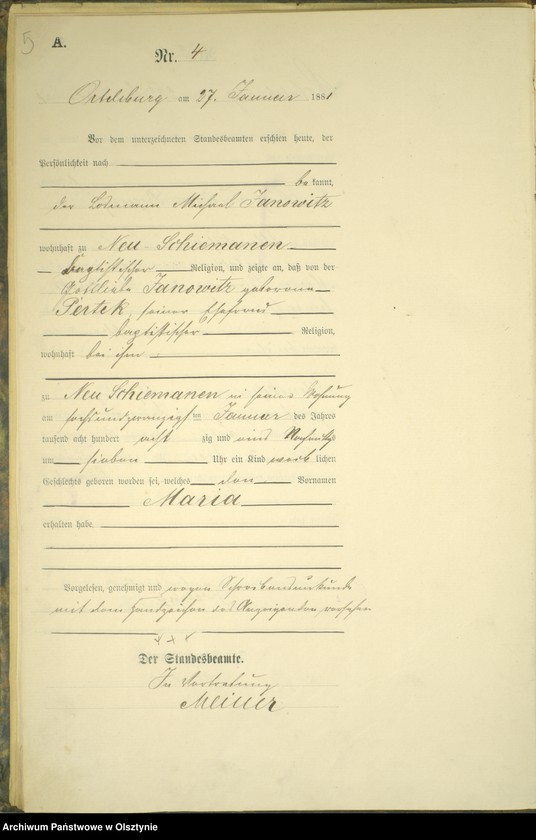 5
A.
Nr. 4
Ortelsburg am 27. Januar 1881
Vor dem unterzeichneten Standesbeamten erschien heute, der
Persönlichkeit nach
be kannt,
der Losmann Michael Janowitz
wohnhaft zu Neu Schiemanen
baptistischer Religion, und zeigte an, daß von der
Gottliebe Janowitz geborene
Pertek seiner Ehefrau
baptistischer Religion,
wohnhaft bei ihm
zu Neu Schiemanen in seiner Wohnung
am sechsundzwanzigsten Januar des Jahres
tausend acht hundert acht zig und eins Nachmittags
um sieben Uhr ein Kind weib lichen
Geschlechts geboren worden sei, welches den Vornamen
Maria
erhalten habe.
Vorgelesen, genehmigt und wegen Schreibensunkunde
mit dem Handzeichen des Anzeigenden versehen
+++
Der Standesbeamte.
In Vertretung
Archiwum Państwowe w Olsztynie